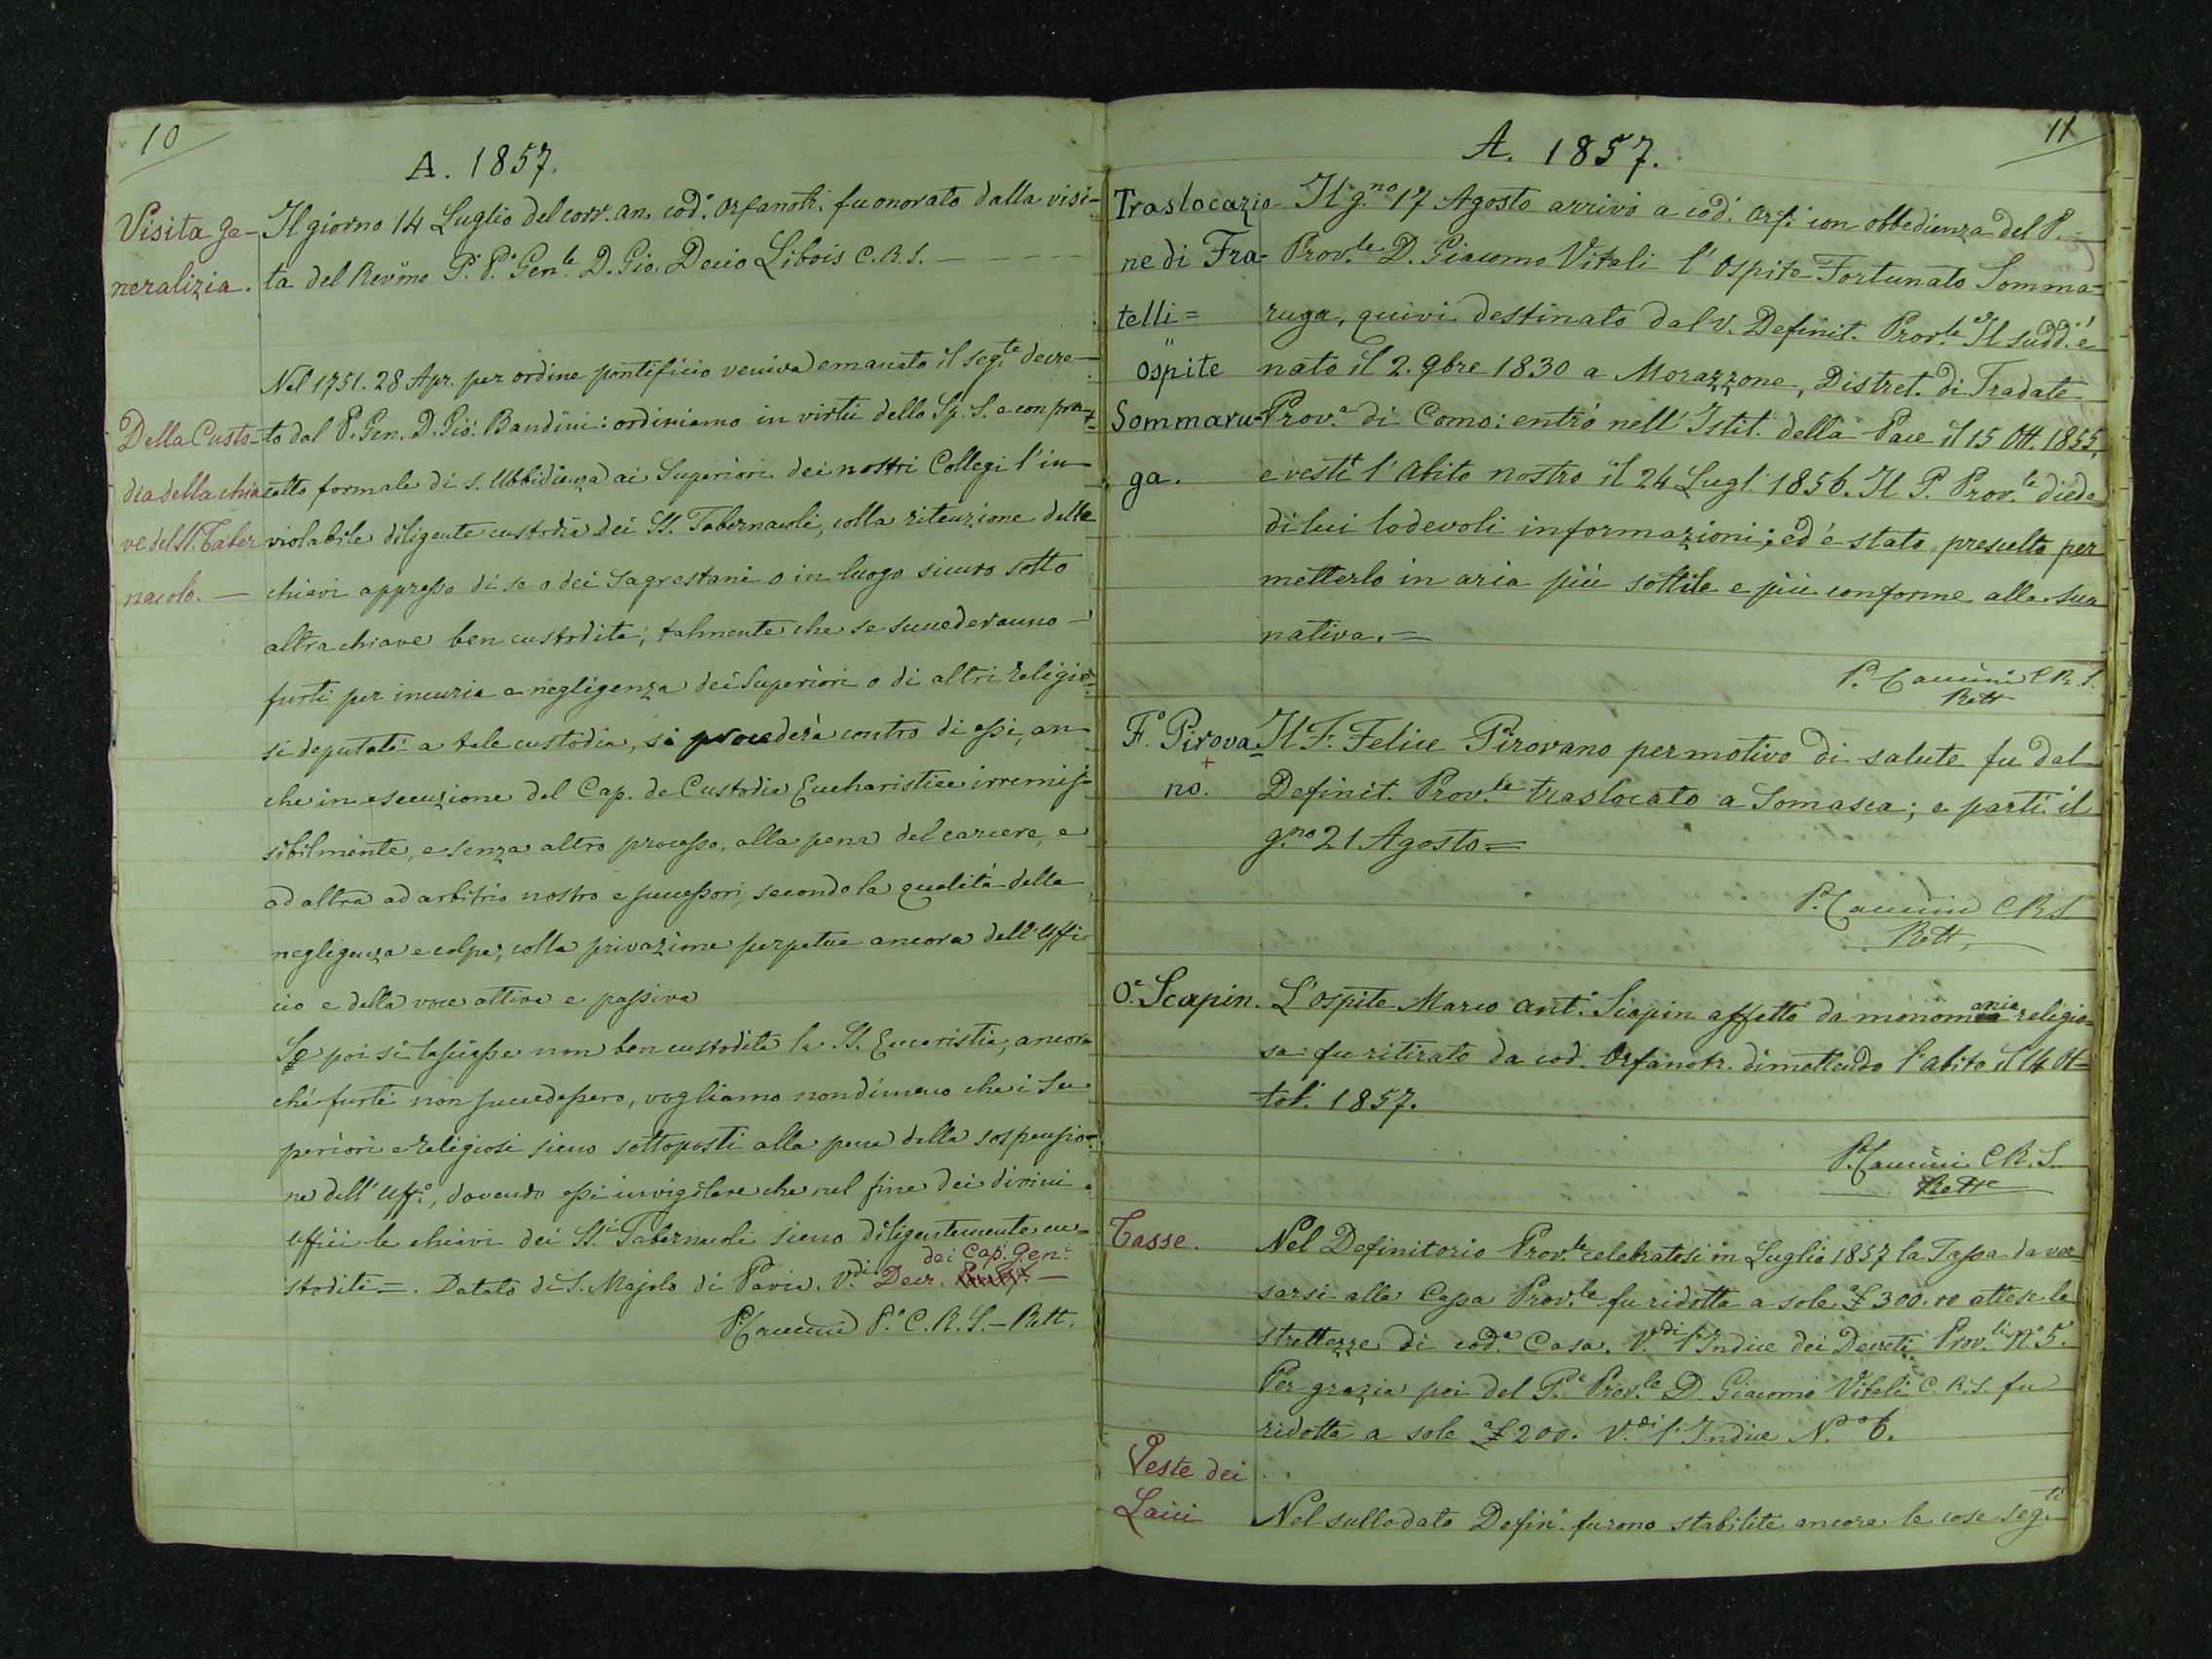 10
A. 1857.
Visita Ge-
neralizia.
Il giorno 14 Luglio del corr. an. cod.° Orfanotr. fu onorato dalla visi-
ta del Rev̈mo P. P. Gen.le D. Gio. Decio Libois C.R.S. - - - -
Della Custo-
dia della chia
ve del SS. Taber
nacolo. —
Nel 1751. 28 Apr. per ordine pontificio veniva emanato il seg.te decre-
to dal P. Gen. D. Gio: Bandini: ordiniamo in virtù dello Sp. S. e con pre-
cetto formale di s. Ubbidienza ai Superiori dei nostri Collegi l'in-
violabile diligente custodia dei SS. Tabernacoli, colla ritenzione delle
chiavi appresso di se o dei Sagrestani o in luogo sicuro sotto
altra chiave ben custodita; talmente che se succederanno -
furti per incuria e negligenza dei Superiori o di altri religio-
si deputati a tale custodia, si procederà contro di essi, an-
che in esecuzione del Cap. de Custodia Eucharistiae irremis-
sibilmente, e senza altro processo, alla pena del carcere, e
ad altra ad arbitrio nostro e successori, secondo la qualità della
negligenza e colpa; colla privazione perpetua ancora dell'Uffi-
cio e della voce attiva e passiva
Se poi si lasciasse non ben custodita la SS. Eucaristia, ancor-
chè furti non succedessero, vogliamo nondimeno che i Su-
periori e religiosi sieno sottoposti alla pena della sospensio-
ne dell'Uff.°, dovendo essi invigilare che nel fine dei divini
Uffici le chiavi dei SS.i Tabernacoli sieno diligentemente cu-
stodite =. Datato di S. Majolo di Pavia. V.di Decr. dei Cap. Gen.i —
P. C. R. S. - Rett.
11
A. 1857.
Traslocazio-
ne di Fra-
telli =
Ospite
Sommaru-
ga.
Il g.no 17 Agosto arrivò a cod. Orf. con obbedienza del P.
Prov.le D. Giacomo Vitali l'Ospite Fortunato Somma-
ruga, quivi destinato dal V. Definit. Prov.le Il sudd.° è
nato il 2. 9bre 1830 a Morazzone, Distret. di Tradate
Prov.a di Como: entrò nell'Istit. della Pace il 15 Ott. 1855,
e vestì l'abito nostro il 24 Lugl. 1856. Il P. Prov.le diede
di lui lodevoli informazioni; ed è stato prescelto per
metterlo in aria più sottile e più conforme alla sua
nativa. =
C.R.S.
Rett
F.° Pirova
+
no.
Il F. Felice Pirovano per motivo di salute fu dal
Definit. Prov.le traslocato a Somasca; e partì il
g.no 21 Agosto =
C.R.S
Rett.
O.e Scapin.
L'Ospite Marco Ant.° Scapin affetto da monomania religio-
sa fu ritirato da cod. Orfanotr. dimettendo l'abito il 14 Ot-
tob. 1857.
C.R.S.
Rett
Tasse.
Nel Definitorio Prov.le celebratosi in Luglio 1857 la Tassa da ver-
sarsi alla Cassa Prov.le fu ridotta a sole £ 300.00 attese le
strettezze di cod.a Casa. V.di l'Indice dei Decreti Prov.li N.° 5.
Per grazia poi del P.e Prov.le D. Giacomo Vitali C.R.S. fu
ridotta a sole £ 200. V.di l'Indice N.° 6.
Veste dei
Laici
Nel sullodato Defin. furono stabilite ancora le cose seg.ti